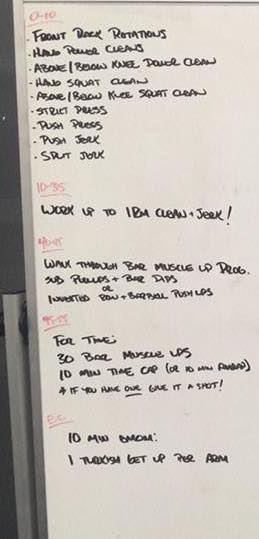 0-10
- FRONT RACK ROTATIONS
- HANG POWER CLEANS
- ABOVE/BELOW KNEE POWER CLEAN
- HANG SQUAT CLEAN
- ABOVE/BELOW KNEE SQUAT CLEAN
- STRICT PRESS
- PUSH PRESS
- PUSH JERK
- SPLIT JERK
10-35
WORK UP TO 1RM CLEAN + JERK!
40-45
WALK THROUGH BAR MUSCLE UP PROG.
SUB PULLUPS + BAR DIPS
OR
INVERTED ROW + BARBELL PUSH UPS
45-55
FOR TIME:
30 BAR MUSCLE UPS
10 MIN TIME CAP (OR 10 MIN AMRAP)
* IF YOU HAVE ONE GIVE IT A SHOT!
E.C.
10 MIN EMOM:
1 TURKISH GET UP PER ARM